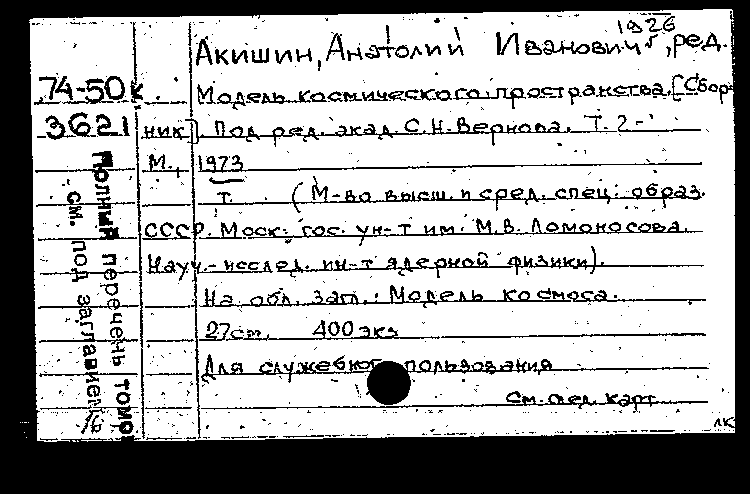 1926
Акишин, Анатолий Иванович, ред.
74-50к
Модель космического пространства. [Сбор-
3621
ник]. Под ред. акад. С.Н. Вернова. Т. 2-
М., 1973
т. (М-во высш. и сред. спец. образ.
СССР. Моск. гос. ун-т им. М.В. Ломоносова.
Науч.-исслед. ин-т ядерной физики).
На обл. загл.: Модель космоса.
27см. 400 экз
Для служебного пользования
См. след. карт.
Полный перечень томов
см. под заглавием
лк